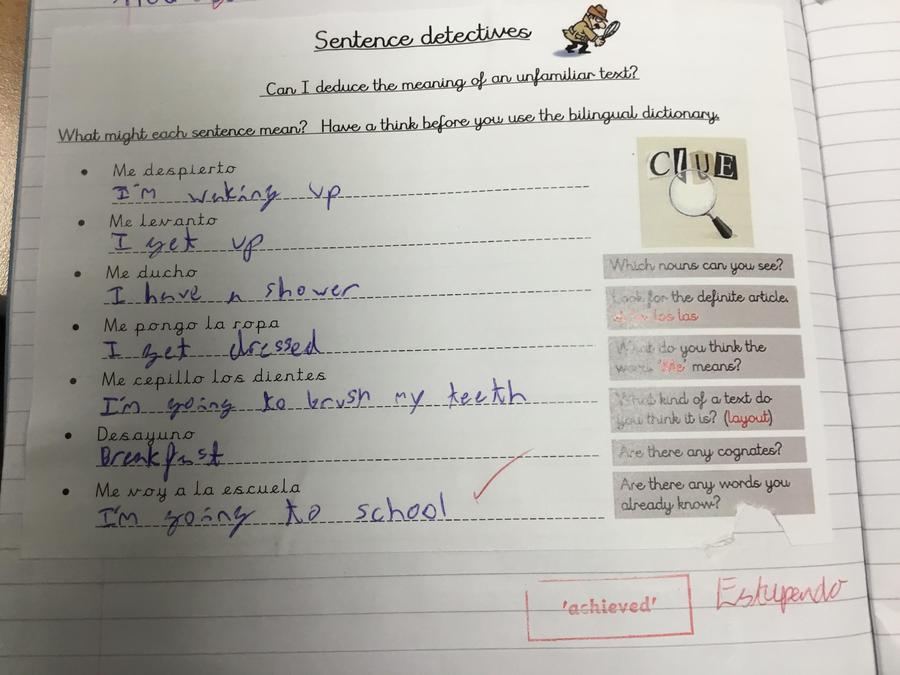 Sentence detectives
Can I deduce the meaning of an unfamiliar text?
What might each sentence mean? Have a think before you use the bilingual dictionary.
Me despierto
I'm waking up
Me levanto
I get up
Me ducho
I have a shower
Me pongo la ropa
I get dressed
Me cepillo los dientes
I'm going to brush my teeth
Desayuno
Breakfast
Me voy a la escuela
I'm going to school
CLUE
Which nouns can you see?
Look for the definite article.
el la los las
What do you think the
word 'Me' means?
What kind of a text do
you think it is? (layout)
Are there any cognates?
Are there any words you
already know?
'achieved'
Estupendo